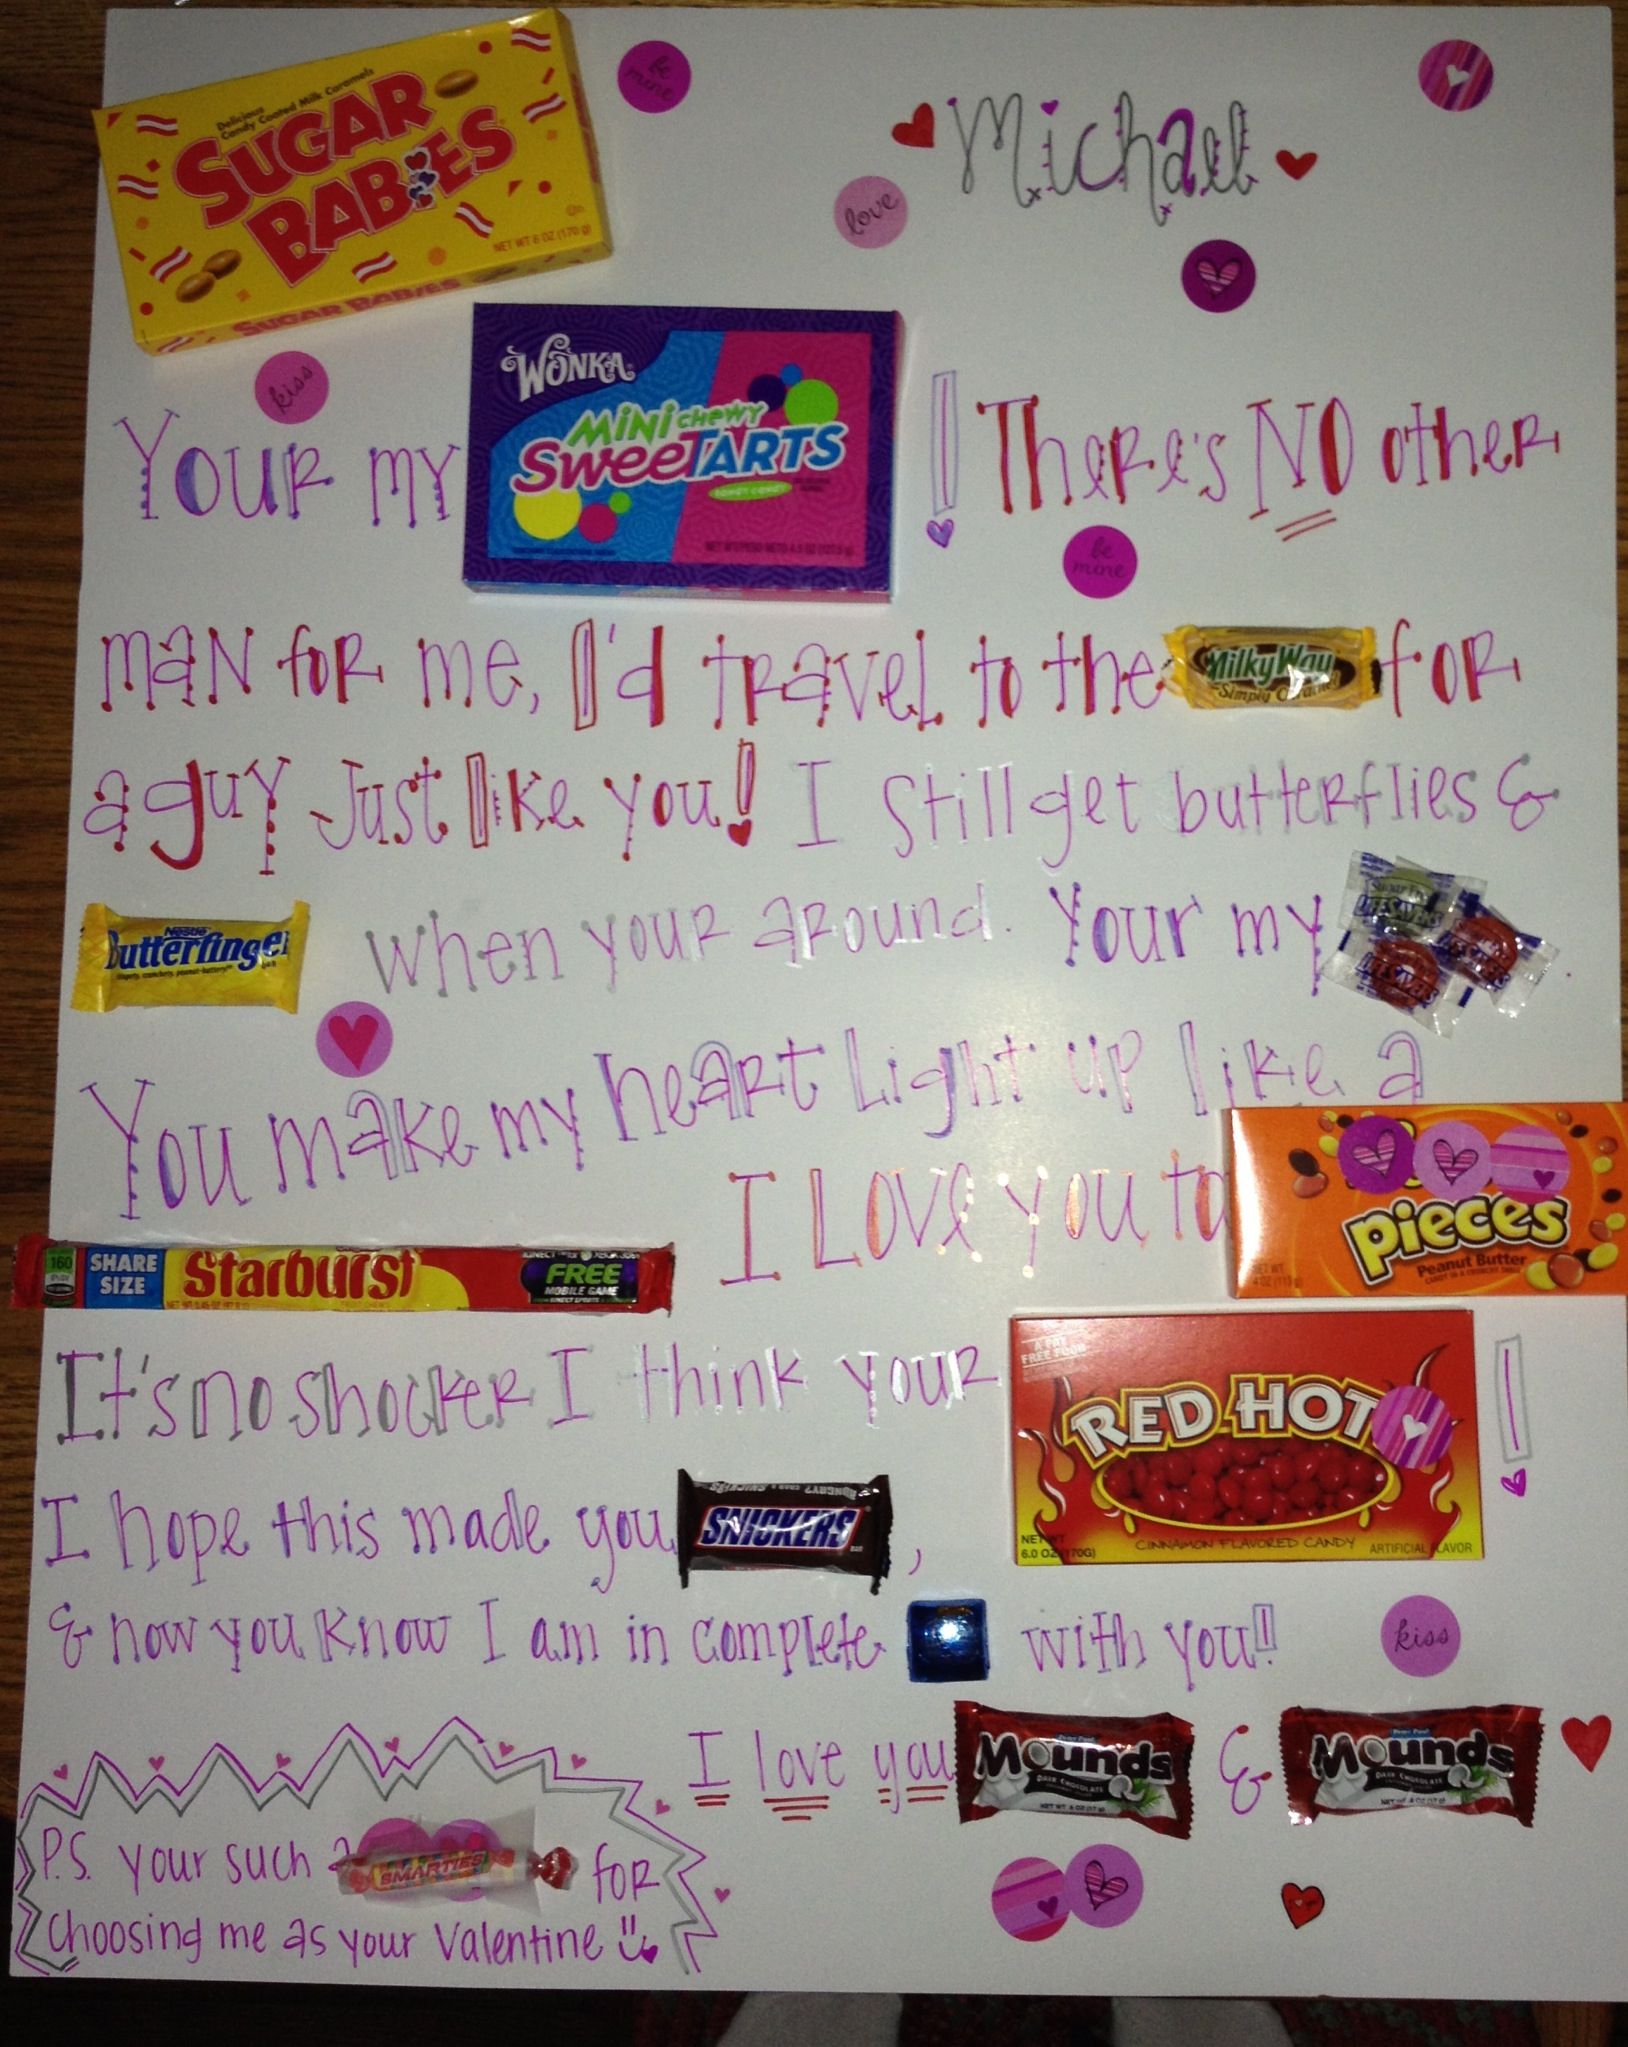 Delicious
Candy Coated Milk Caramels
SUGAR
BABIES
NET WT 6 OZ (170 g)
SUGAR BABIES
be mine
Michael
love
kiss
Your my WONKA MiNi chewy SweeTARTS ! There's NO other
be mine
man for me, I'd travel to the Milky Way Simply Caramel for
a guy Just like you! I still get butterflies &
Nestlé Butterfinger when your around. Your my Sugar Free LIFESAVERS LIFESAVERS LIFESAVERS
You make my heart Light up like a
160 SHARE SIZE Starburst FREE MOBILE GAME
I Love you to pieces Peanut Butter
It's no shocker I think your RED HOT !
A FAT FREE FOOD
NET WT 6.0 OZ (170G) CINNAMON FLAVORED CANDY ARTIFICIAL FLAVOR
I hope this made you SNICKERS ,
& now you know I am in complete with you!
kiss
I love you Mounds DARK CHOCOLATE & Mounds DARK CHOCOLATE
P.S. your such a SMARTIES for
choosing me as your Valentine